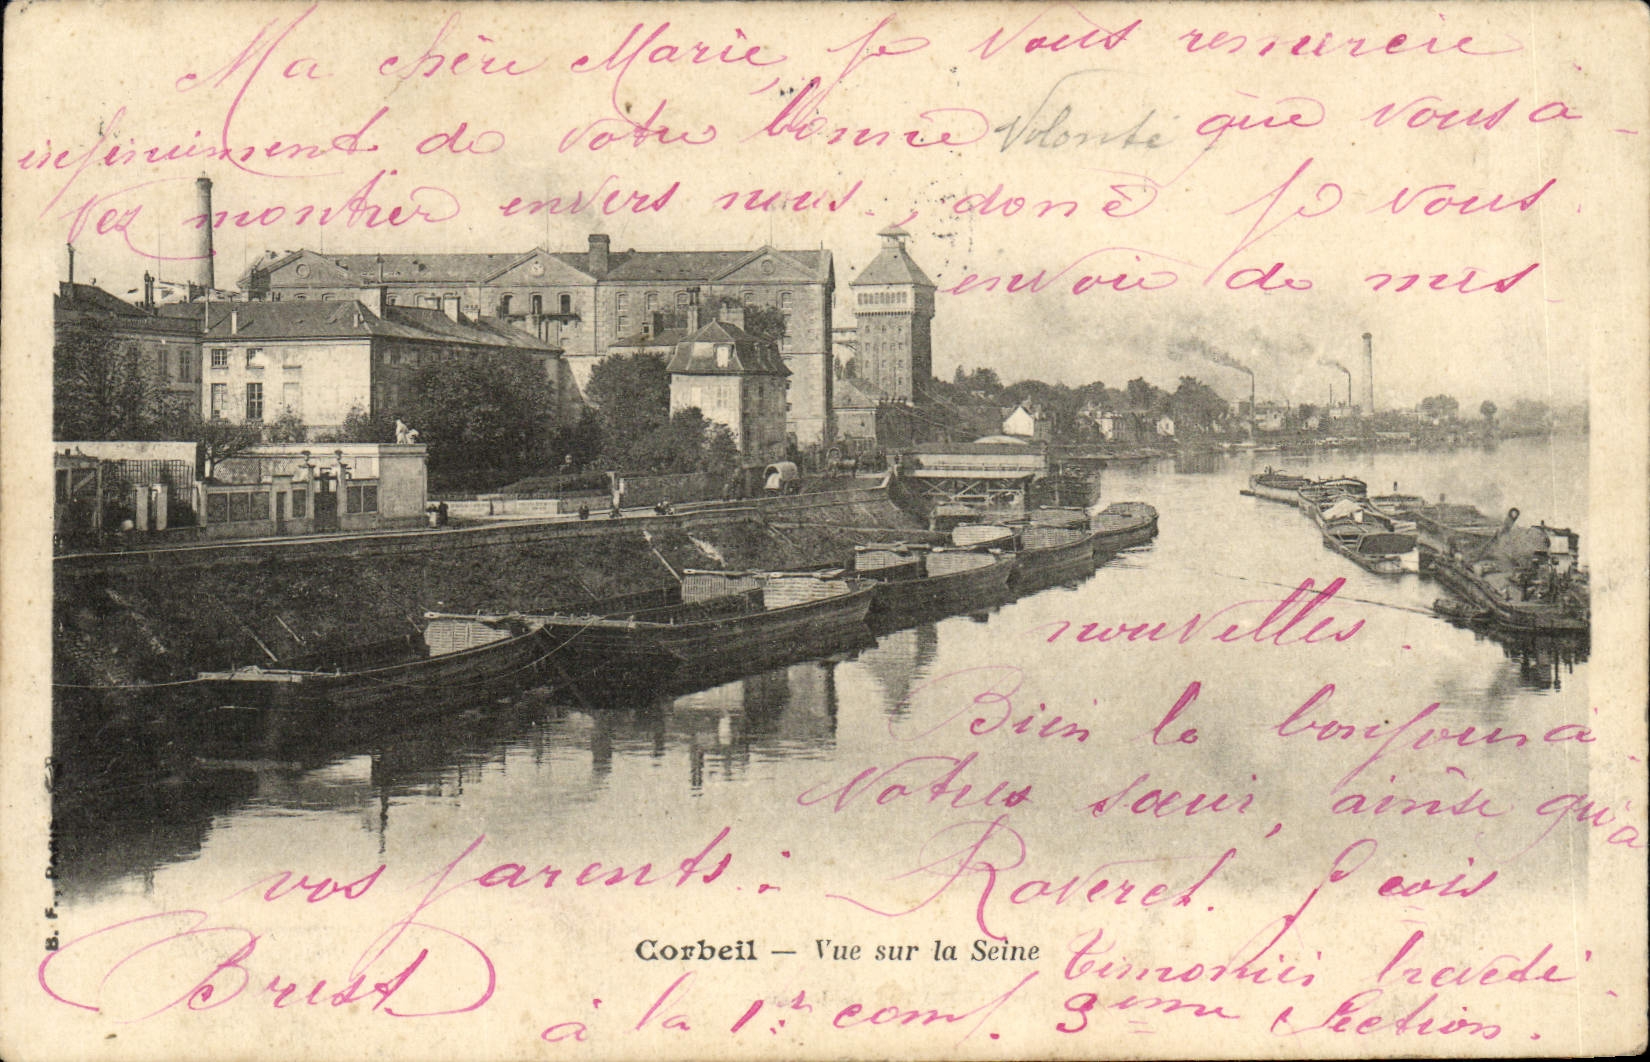 Ma chère Marie, je vous remercie
infiniment de votre bonne Volonté que vous a-
vez montrer envers nous, donc je vous
envoie de mes
nouvelles.
Bien le bonjour a
Notres sœur, ainse qu'à
vos parents. Roveret. Louis
Corbeil — Vue sur la Seine
B. F., PARIS
Brest
Timonier breveté
à la 1re comp. 3eme Section.